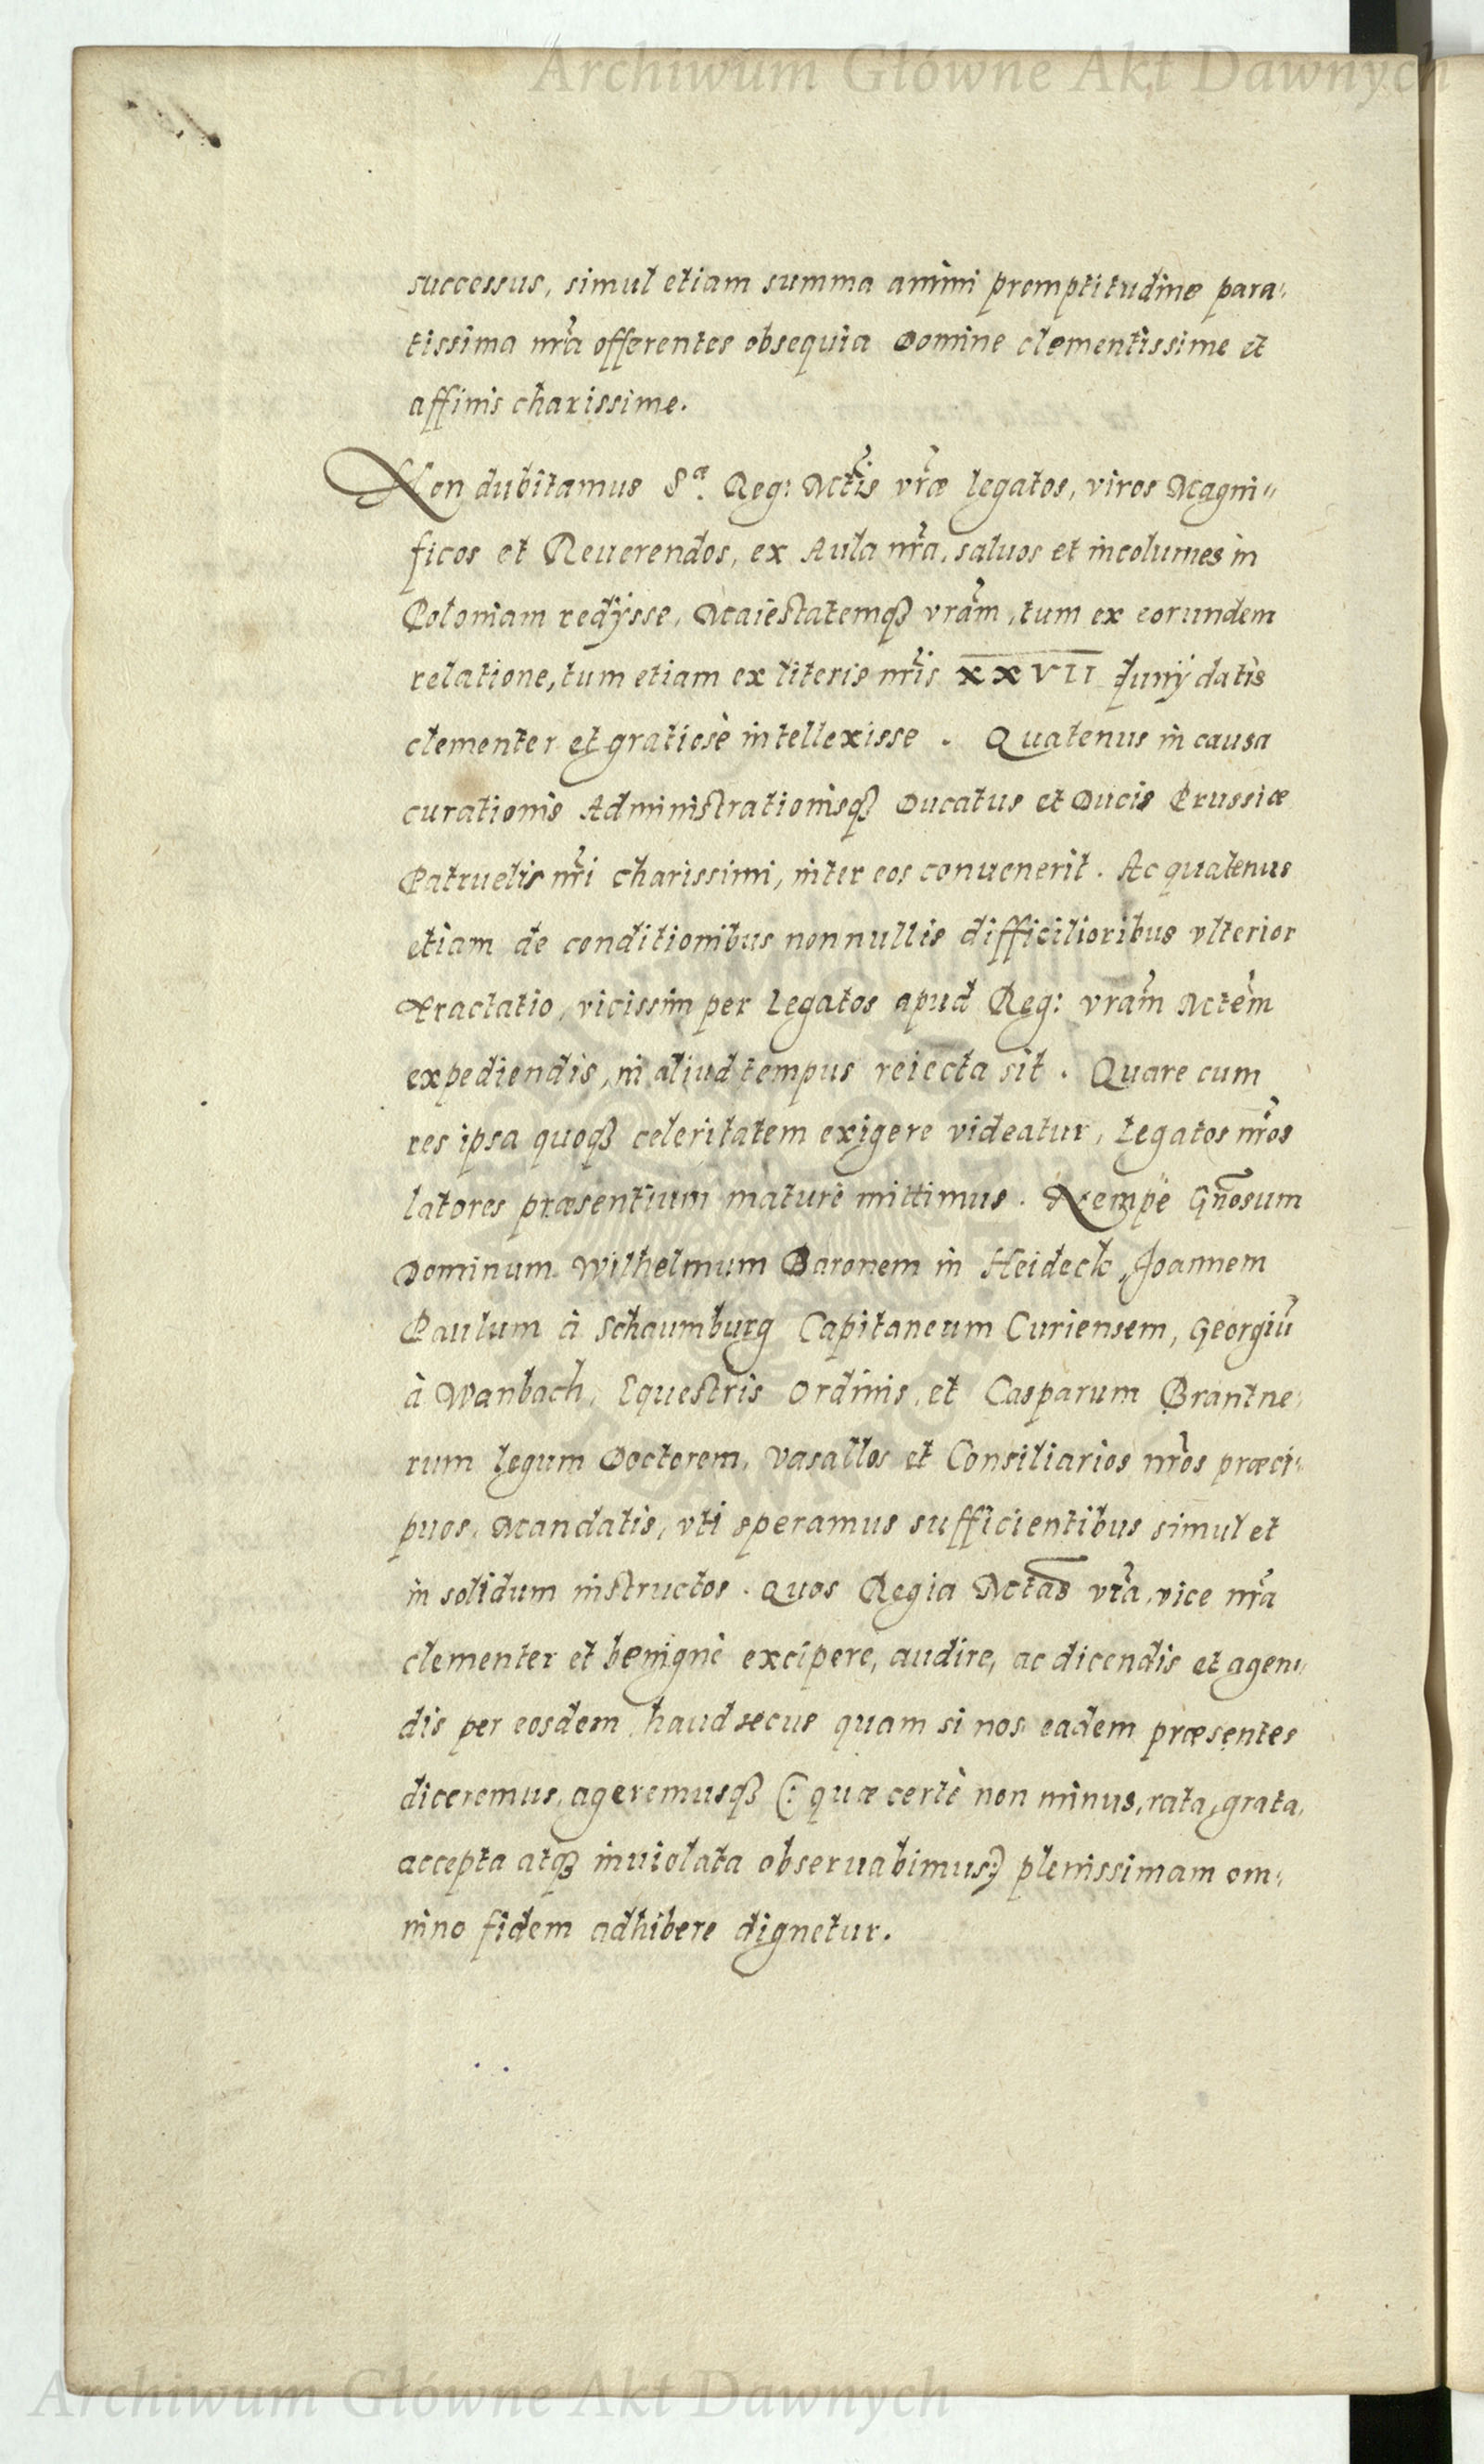 Archiwum Główne Akt Dawnych
successus, simul etiam summa animi promptitudine para-
tissima nr̃a offerentes obsequia Domine clementissime et
affinis charissime.
Non dubitamus Sᵃ. Reg: Mtis vr̃æ legatos, viros Magni-
ficos et Reuerendos, ex Aula nr̃a, saluos et incolumes in
Poloniam redÿsse, Maiestatemqꝫ vr̃am, tum ex eorundem
relatione, tum etiam ex literis nr̃is XXVII Junÿ datis
clementer et gratiosè intellexisse. Quatenus in causa
curationis Administrationisqꝫ Ducatus et Ducis Prussiæ
Patruelis nr̃i charissimi, inter eos conuenerit. Ac quatenus
etiam de conditionibus nonnullis difficilioribus vlterior
tractatio, vicissim per Legatos apud Reg: vr̃am Mtem
expediendis, in aliud tempus reiecta sit. Quare cum
res ipsa quoqꝫ celeritatem exigere videatur, Legatos nr̃os
latores præsentium maturè mittimus. Nempe Gñosum
Dominum Wilhelmum Baronem in Heideck, Joannem
Paulum à Schaumburg Capitaneum Curiensem, Georgiũ
à Wanbach, Equestris Ordinis, et Casparum Brantne-
rum legum Doctorem, Vasallos et Consiliarios nr̃os præci-
puos, Mandatis, vti speramus sufficientibus simul et
in solidum instructos. Quos Regia Mtas vr̃a, vice nr̃a
clementer et benignè excipere, audire, ac dicendis et agen-
dis per eosdem, haud secus quam si nos eadem præsentes
diceremus, ageremusqꝫ (: quæ certè non minus, rata, grata,
accepta atqꝫ inuiolata obseruabimus:) plenissimam om-
nino fidem adhibere dignetur.
Archiwum Główne Akt Dawnych